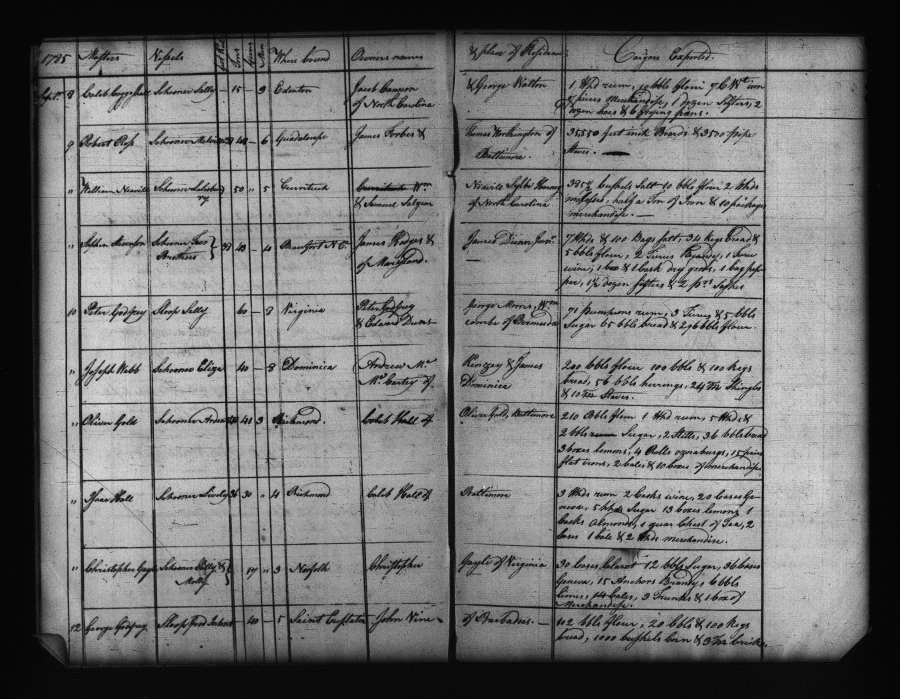 1785 Masters Vessels Feet Keel Tons Guns Men Where bound Owners names & place of Residence Cargoes Exported.
Sept. 8 Caleb Coggeshall Schooner Sally 15 — 3 Edenton Jacob Cannon & George Walton 1 Hhd rum, 10 bbls flour 7 C Wt. iron
of North Carolina & pieces Merchandise, 1 dozen Sifters, 2
dozen hoes & 6 frying pans.
9 Robert Ross Schooner — 6 Guadaloupe James Forbes & Thomas Worthington of 35,550 feet inch Boards & 3500 pipe
Baltimore. Staves. —
" William Nevill Schooner 50 " 5 Currituck Wm. Nevill Henry 395½ bushels Salt 10 bbls flour 2 Hhds
& Samuel Salyear of North Carolina molasses, half a Ton of Iron & 10 packages
merchandise. —
" Stephen Schooner Two 40 — 4 Beaufort N C James Hodges & James Dunn Junr. 7 Hhds & 100 Bags salt, 34 Kegs bread &
Brothers of Maryland. — 5 bbls flour, 2 1
wine, 1 box & 1 cask dry goods, 1 bag pep-
per, 1½ dozen sifters & 2
10 Peter Godfrey Sloop Sally 60 — 8 Virginia Peter Godfrey George Morris, Wm. 71 Puncheons rum, 3 Tierces & 5 bbls
& Edward combe of Bermuda Sugar 65 bbls bread & 296 bbls flour.
" Joseph Webb Schooner Eliza 40 — 8 Dominica Andrew Mc. Kenzey & James 200 bbls flour 100 bbls & 100 Kegs
Mc. Cartey of Dominica bread, 56 bbls herrings, 24 M Shingles
& 10 M Staves.
" Oliver Gold Schooner 41 3 Richmond. Caleb Hall & Oliver Gold, Baltimore 210 Bbls flour 1 Hhd rum, 5 Hhds &
2 bbls Sugar, 2 Stills, 36 bbls bread
3 boxes lemons, 4 Rolls oznaburgs, 15 pairs
flat irons, 2 bales & 10 boxes of merchandise
" Isaac Hall Schooner Lively 36 30 " 4 Richmond Caleb Hall of Baltimore 3 Hhds rum 2 Casks wine, 20 Cases Ge-
neva, 5 hhds Sugar 13 boxes lemons, 1
Casks Almonds, 1 quar Chest of Tea, 2
Cases 1 bale & 2 Hhds merchandise.
" Christopher Gayle Schooner & 17 " 3 Norfolk Christopher Gayle of Virginia 30 Cases Claret 12 bbls Sugar, 36 Cases
Molly Geneva, 15 Anchors Brandy, 6 bbls
limes, 14 bales, 3 Trunks & 1 box of
Merchandise.
12 George Godfrey. Sloop 40 — 5 Saint Eustatia John of Barbadoes. — 112 bbls flour, 20 bbls & 100 Kegs
bread, 1000 bushels Corn & 3 M bricks.